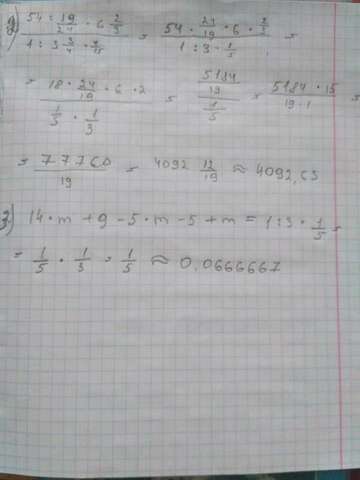 (54 : 19/24 · 6 2/3) / (1 : 3 3/4 · 3/15) = (54 · 24/19 · 6 · 2/3) / (1 : 3 · 1/5) =
= (18 · 24/19 · 6 · 2) / (1/5 · 1/3) = (5184/19) / (1/5) = (5184 · 15) / (19 · 1)
= 77760/19 = 4092 12/19 ≈ 4092,63
3) 14 · m + 9 - 5 · m - 5 + m = 1 : 3 · 1/5 =
= 1/5 · 1/3 · 1/5 ≈ 0,0666667